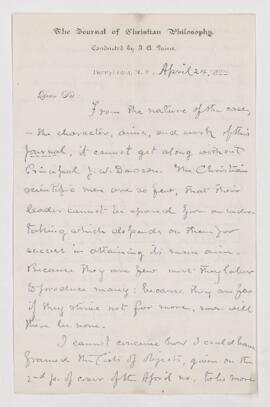 The Journal of Christian Philosophy.
Conducted by J. A. Paine.
Tarrytown, N. Y., April 24, 1882
Dear Sir:
From the nature of the case,
– the character, aims, and work of this
Journal, it cannot get along without
Principal J. W. Dawson. The Christian
scientific men are so few, that their
leader cannot be spared from an under-
taking which depends on them for
success in attaining its main aim.
Because they are few must they labor
to produce many: because they are few
if they strive not for more, soon will
there be none.
I cannot conceive how I could have
framed the lists of objects, given on the
2nd p. of cover of the April no., to be more